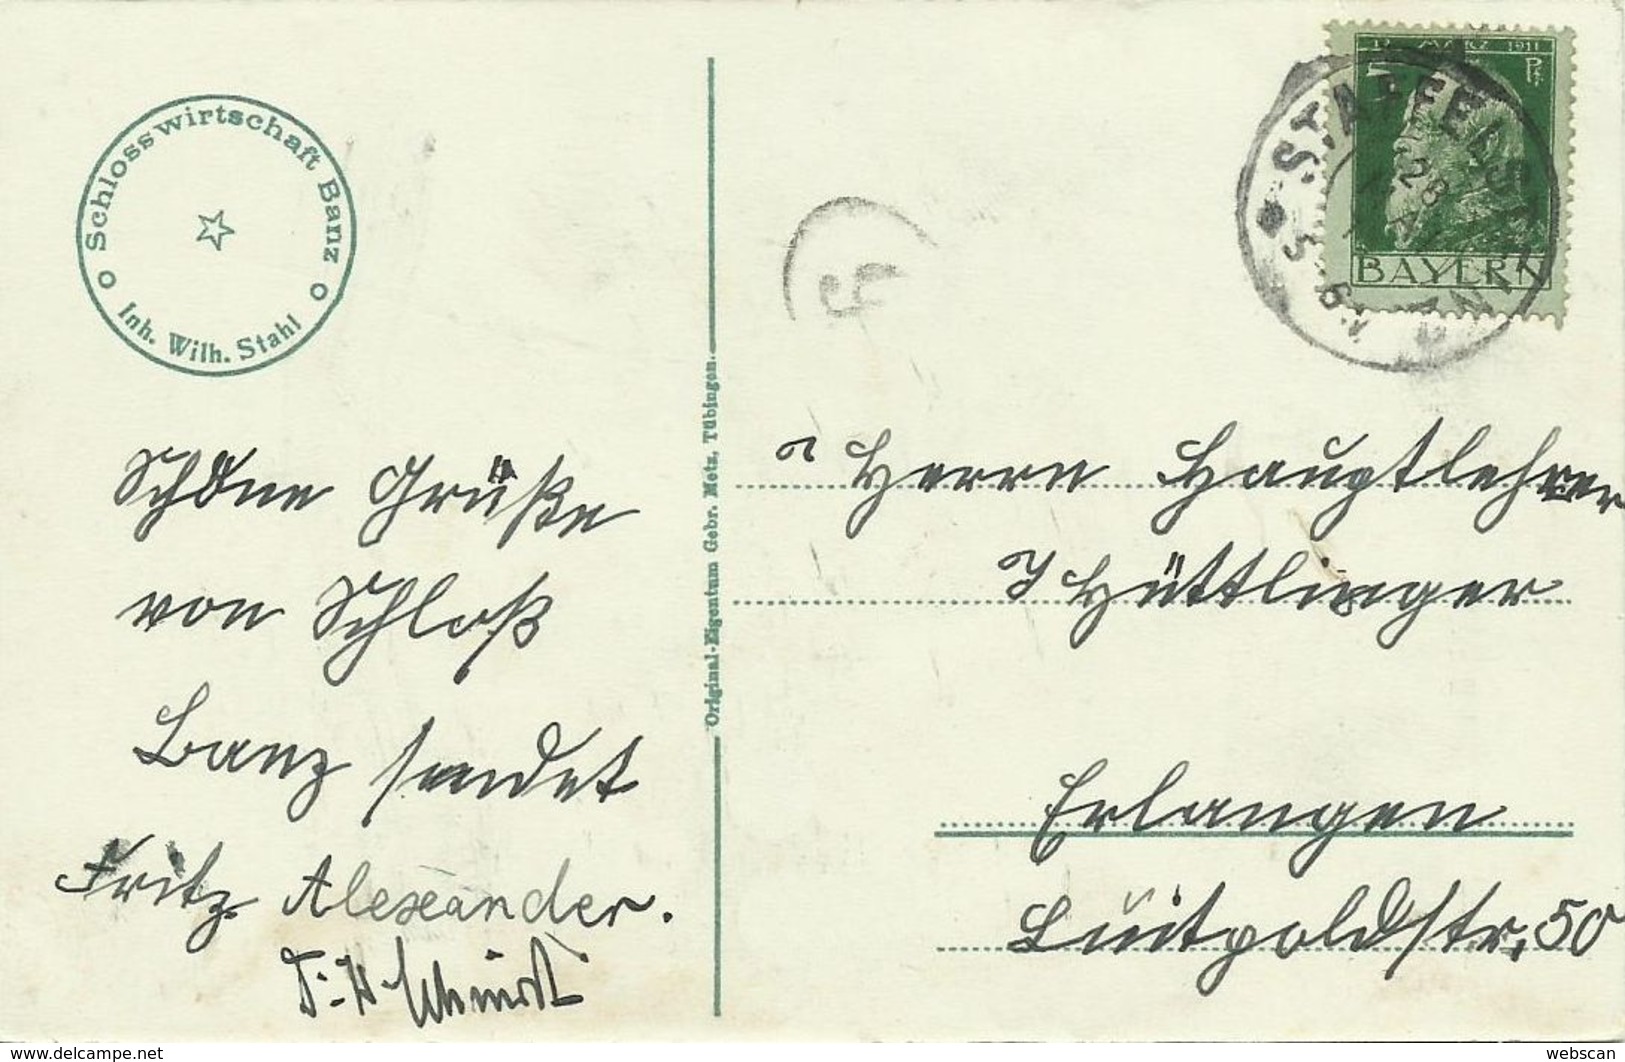 Schlosswirtschaft Banz
Inh. Wilh. Stahl
12 MÄRZ 1911
5 Pf.
BAYERN
STAFFELSTEIN
28
Original-Eigentum Gebr. Metz, Tübingen.
Schöne Grüße
von Schloß
Banz sendet
Fritz Alexander.
Schmidt
Herrn Hauptlehrer
Hüttlinger
Erlangen
Luitpoldstr. 50
webscan
www.delcampe.net